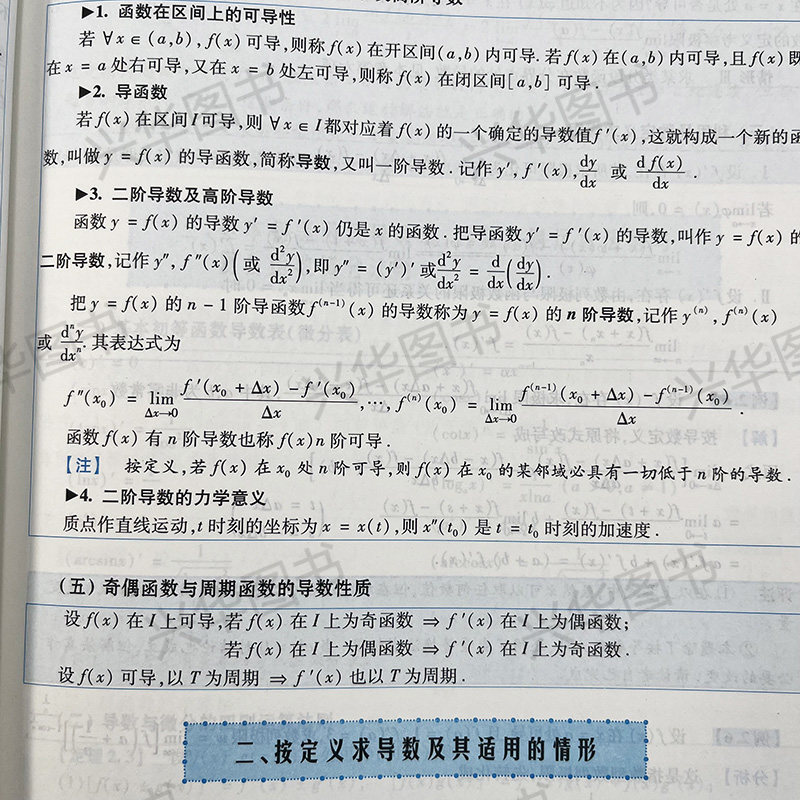 ▶1. 函数在区间上的可导性
若 ∀x∈(a,b),f(x) 可导,则称f(x) 在开区间(a,b) 内可导. 若f(x) 在(a,b) 内可导,且f(x) 既
在 x = a 处右可导,又在 x = b 处左可导,则称 f(x) 在闭区间[a,b] 可导.
▶2. 导函数
若f(x) 在区间 I 可导,则 ∀x∈I 都对应着 f(x) 的一个确定的导数值f′(x),这就构成一个新的函
数,叫做 y = f(x) 的导函数,简称导数,又叫一阶导数. 记作 y′, f′(x), dy/dx 或 df(x)/dx.
▶3. 二阶导数及高阶导数
函数 y = f(x) 的导数 y′ = f′(x) 仍是 x 的函数. 把导函数 y′ = f′(x) 的导数,叫作 y = f(x) 的
二阶导数,记作 y″, f″(x)(或 d²y/dx²),即 y″ = (y′)′ 或 d²y/dx² = d/dx(dy/dx).
把 y = f(x) 的 n − 1 阶导函数 f⁽ⁿ⁻¹⁾(x) 的导数称为 y = f(x) 的 n 阶导数,记作 y⁽ⁿ⁾, f⁽ⁿ⁾(x)
或 dⁿy/dxⁿ. 其表达式为
f″(x₀) = lim_{Δx→0} [f′(x₀ + Δx) − f′(x₀)]/Δx, ⋯, f⁽ⁿ⁾(x₀) = lim_{Δx→0} [f⁽ⁿ⁻¹⁾(x₀ + Δx) − f⁽ⁿ⁻¹⁾(x₀)]/Δx.
函数 f(x) 有 n 阶导数也称 f(x) n 阶可导.
【注】 按定义,若 f(x) 在 x₀ 处 n 阶可导,则 f(x) 在 x₀ 的某邻域必具有一切低于 n 阶的导数.
▶4. 二阶导数的力学意义
质点作直线运动,t 时刻的坐标为 x = x(t),则 x″(t₀) 是 t = t₀ 时刻的加速度.
(五) 奇偶函数与周期函数的导数性质
设 f(x) 在 I 上可导,若 f(x) 在 I 上为奇函数 ⇒ f′(x) 在 I 上为偶函数;
若 f(x) 在 I 上为偶函数 ⇒ f′(x) 在 I 上为奇函数.
设 f(x) 可导,以 T 为周期 ⇒ f′(x) 也以 T 为周期.
二、按定义求导数及其适用的情形
兴华图书